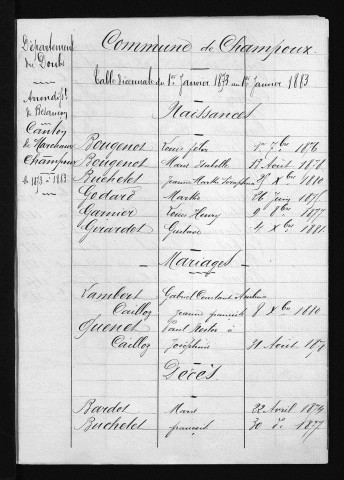 Département
du Doubs
Arrondisst
de Besançon
Canton
de Marchaux
Champoux
de 1873 à 1883
Commune de Champoux
Table décennale du 1er Janvier 1873 au 1er Janvier 1883
Naissances
Bougenot Louis Jules 1er 7bre 1876
Bougenot Marie Isabelle 17 Août 1878
Buchelet Jeanne Marthe Joséphine 25 Xbre 1880
Godard Marthe 26 1875
Garnier Louis Henry 9 8bre 1877
Girardot Gustave 4 Xbre 1881
Mariages
Lambert Gabriel Constant
Cailloz Jeanne 8 Xbre 1880
Quenet Paul à
Cailloz Joséphine 31 Août 1878
Décès
Bardot Marie 22 Avril 1874
Buchelet François 30 do 1877